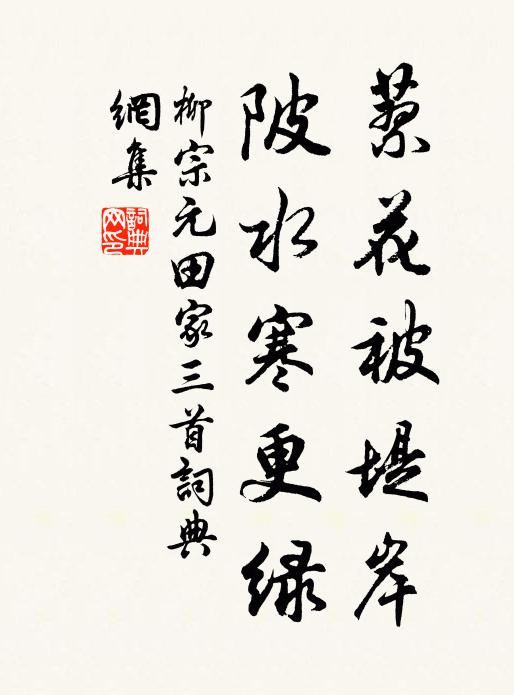 蓼花被堤岸
陂水寒更绿
柳宗元田家三首詞典
網集
詞典
网印